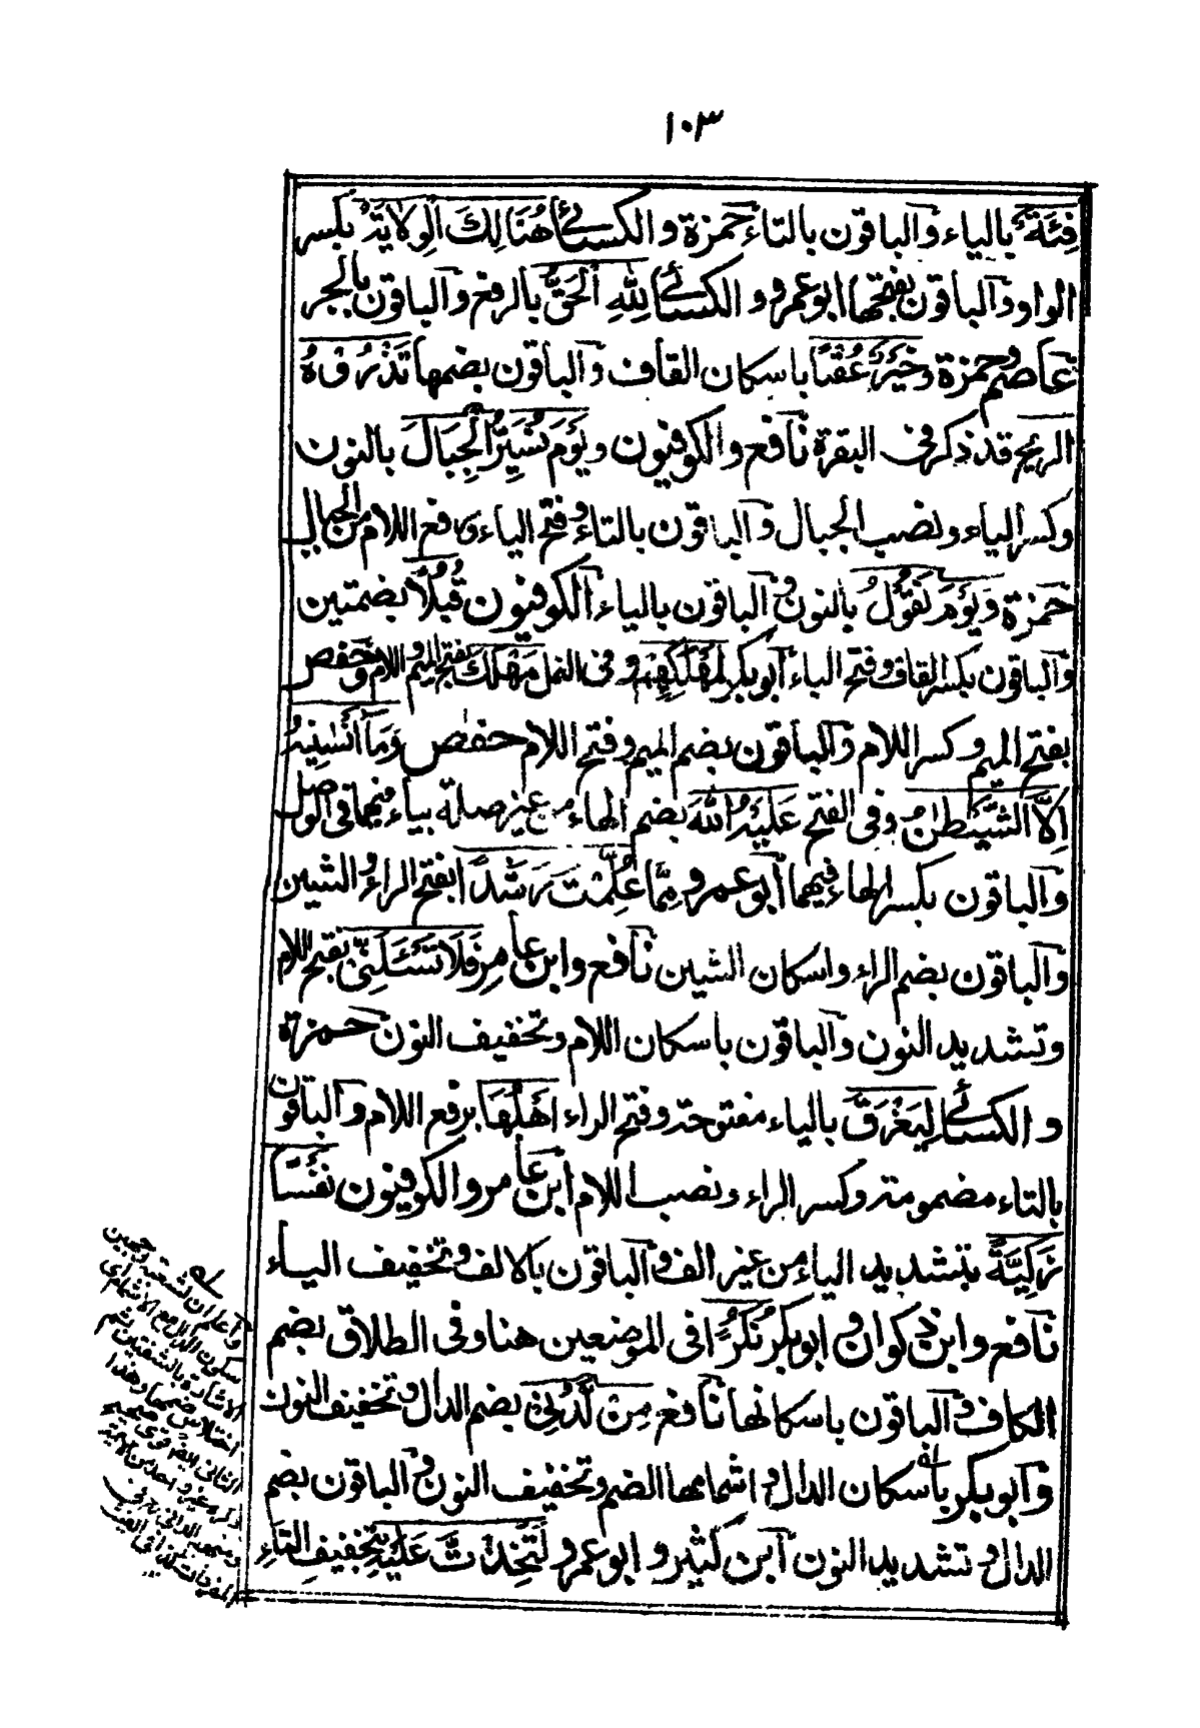 ١٠٣
فِئَةٌ بالياء والباقون بالتاء حمزة والكسائى هُنَالِكَ الْوِلَايَةُ بكسر
الواو والباقون بفتحها ابو عمرو و الكسائى لِلهِ الْحَقُّ بالرفع والباقون بالجر
عاصم وحمزة وخَيْرٌ عُقْبًا باسكان القاف والباقون بضمها تَذْرُوْهُ
الريح قد ذكر فى البقرة نافع والكوفيون ويَوْمَ نُسَيِّرُ الْجِبَالَ بالنون
وكسر الياء ونصب الجبال والباقون بالتاء وفتح الياء ورفع اللام من الجبال
حمزة وَيَوْمَ نَقُوْلُ بالنون والباقون بالياء الكوفيون قُبُلًا بضمتين
والباقون بكسر القاف وفتح الباء ابو بكر لِمَهْلَكِهِمْ وفى النمل مَهْلَكَ بفتح الميم واللام وحفص
بفتح الميم وكسر اللام والباقون بضم الميم وفتح اللام حفص وَمَآ اَنْسٰنِيْهُ
اِلَّا الشَّيْطٰنُ وفى الفتح عَلَيْهُ اللهَ بضم الهاء من غير صلة بياء فيهما فى الوصل
والباقون بكسر الهاء فيهما ابو عمرو مِمَّا عُلِّمْتَ رَشَدًا بفتح الراء والشين
والباقون بضم الراء واسكان الشين نافع وابن عامر فَلَا تَسْـَٔلَنِّىْ بفتح اللام
وتشديد النون والباقون باسكان اللام وتخفيف النون حمزة
و الكسائى لِيَغْرَقَ بالياء مفتوحة وفتح الراء اَهْلُهَا برفع اللام والباقون
بالتاء مضمومة وكسر الراء ونصب اللام ابن عامر والكوفيون نَفْسًا
زَكِيَّةً بتشديد الياء من غير الف والباقون بالالف وتخفيف الياء
نافع وابن ذكوان وابو بكر نُكُرًا فى الموضعين هنا وفى الطلاق بضم
الكاف والباقون باسكانها نافع مِنْ لَّدُنِىْ بضم الدال وتخفيف النون
وابو بكر باسكان الدال واشمامها الضم وتخفيف النون والباقون بضم
الدال وتشديد النون ابن كثير و ابو عمرو لَتَخِذْتَ عَلَيْهِ بتخفيف التاء
واعلم ان لشعبة وجهين
سكون الدال مع الاشمام اى
الاشارة بالشفتين ثم
اختلاس ضمها وهذا